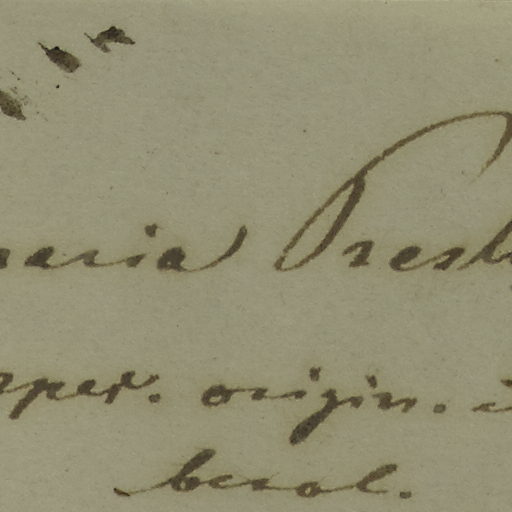 naria Presl
sper. origin. i
berol.